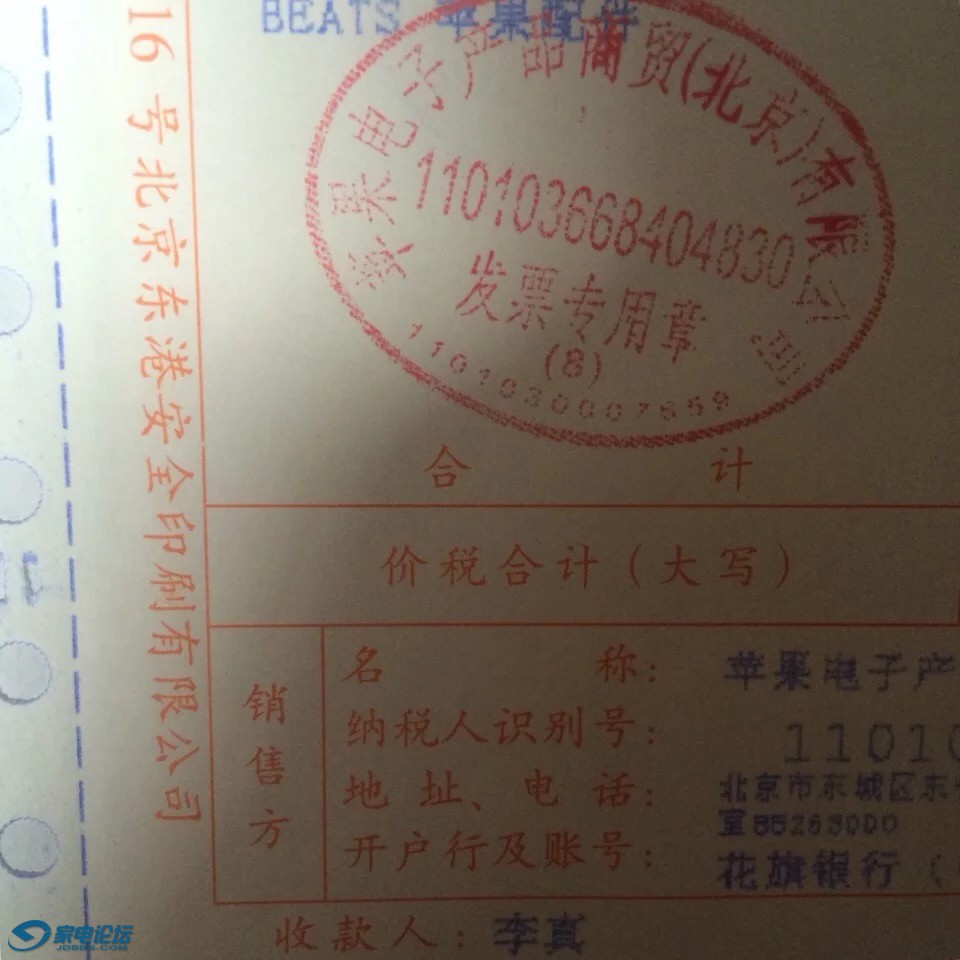 BEATS 苹果配件
16 号北京东港安全印刷有限公司
苹果电子产品商贸(北京)有限公司
110103668404830
发票专用章
(8)
1101030007659
合 计
价税合计（大写）
销售方
名 称： 苹果电子产
纳税人识别号： 11010
地 址、电 话： 北京市东城区东
室85263000
开户行及账号： 花旗银行（
收款人：李真
家电论坛
JDBBS.COM